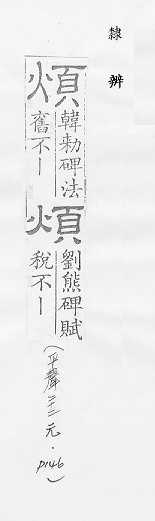 隸辨
煩
韓勑碑法
舊不｜
煩
劉熊碑賦
稅不｜
（平聲二十二元．P146）